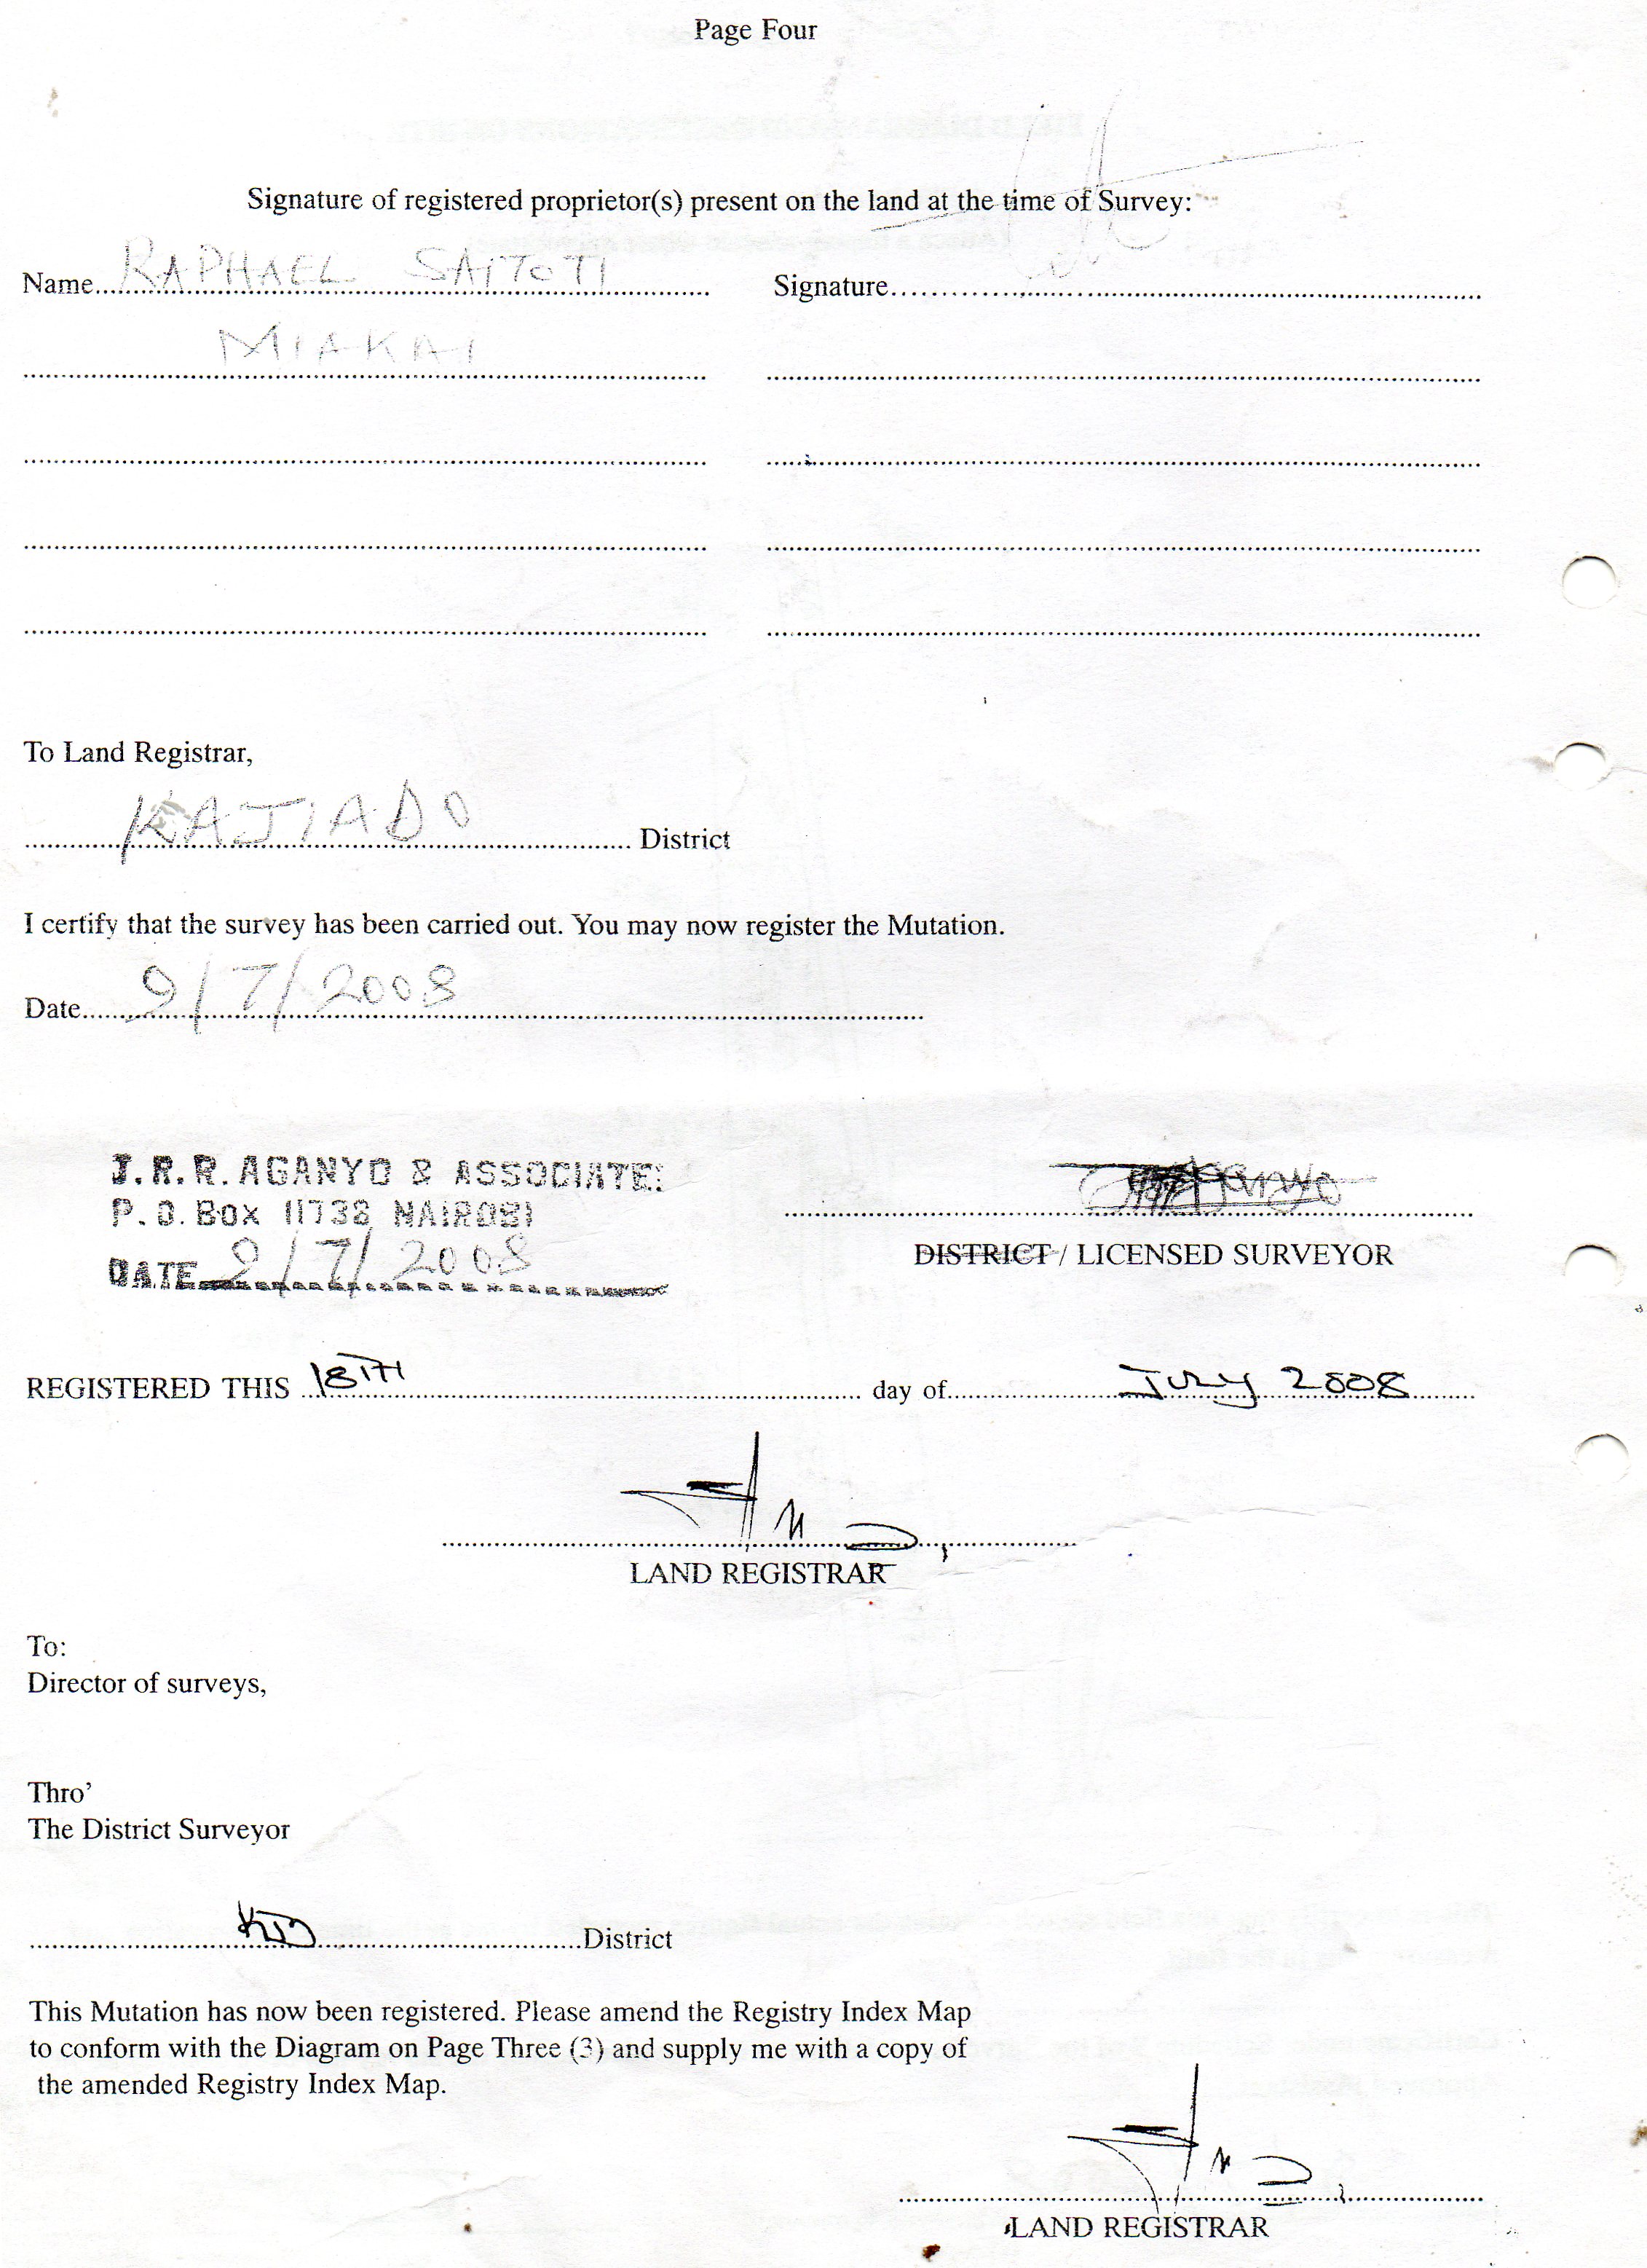 Page Four
Signature of registered proprietor(s) present on the land at the time of Survey:
Name RAPHAEL SAITOTI Signature
MIAKAI
To Land Registrar,
KAJIADO District
I certify that the survey has been carried out. You may now register the Mutation.
Date 9/7/2008
J.R.R. AGANYO & ASSOCIATE:
P.O. Box 11738 NAIROBI
DATE 9/7/2008
DISTRICT / LICENSED SURVEYOR
REGISTERED THIS 18TH day of July 2008
LAND REGISTRAR
To:
Director of surveys,
Thro'
The District Surveyor
KJD District
This Mutation has now been registered. Please amend the Registry Index Map
to conform with the Diagram on Page Three (3) and supply me with a copy of
the amended Registry Index Map.
LAND REGISTRAR